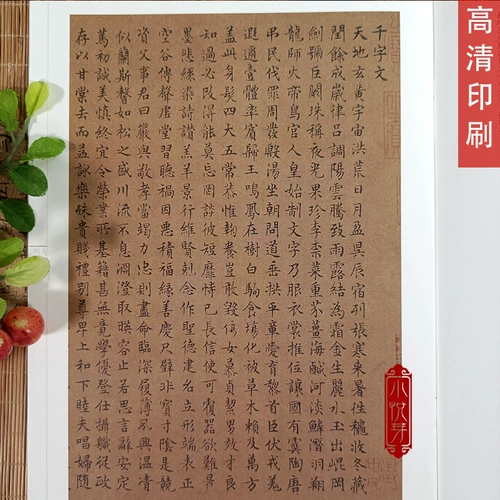 高清印刷
千字文
天地玄黃宇宙洪荒日月盈昃辰宿列張寒來暑往穐收冬藏
閏餘成歲律呂調陽雲騰致雨露結為霜金生麗水玉出崐岡
劍號巨闕珠稱夜光果珍李柰菜重芥薑海鹹河淡鱗潛羽翔
龍師火帝鳥官人皇始制文字乃服衣裳推位讓國有虞陶唐
弔民伐罪周發殷湯坐朝問道垂拱平章愛育黎首臣伏戎羌
遐邇壹體率賓歸王鳴鳳在樹白駒食場化被草木賴及萬方
蓋此身髮四大五常恭惟鞠養豈敢毀傷女慕貞絜男效才良
知過必改得能莫忘罔談彼短靡恃己長信使可覆器欲難量
墨悲絲染詩讚羔羊景行維賢剋念作聖德建名立形端表正
空谷傳聲虛堂習聽禍因惡積福緣善慶尺璧非寶寸陰是競
資父事君曰嚴與敬孝當竭力忠則盡命臨深履薄夙興溫凊
似蘭斯馨如松之盛川流不息淵澄取暎容止若思言辭安定
篤初誠美慎終宜令榮業所基籍甚無竟學優登仕攝職從政
存以甘棠去而益詠樂殊貴賤禮別尊卑上和下睦夫唱婦隨
小悦芽